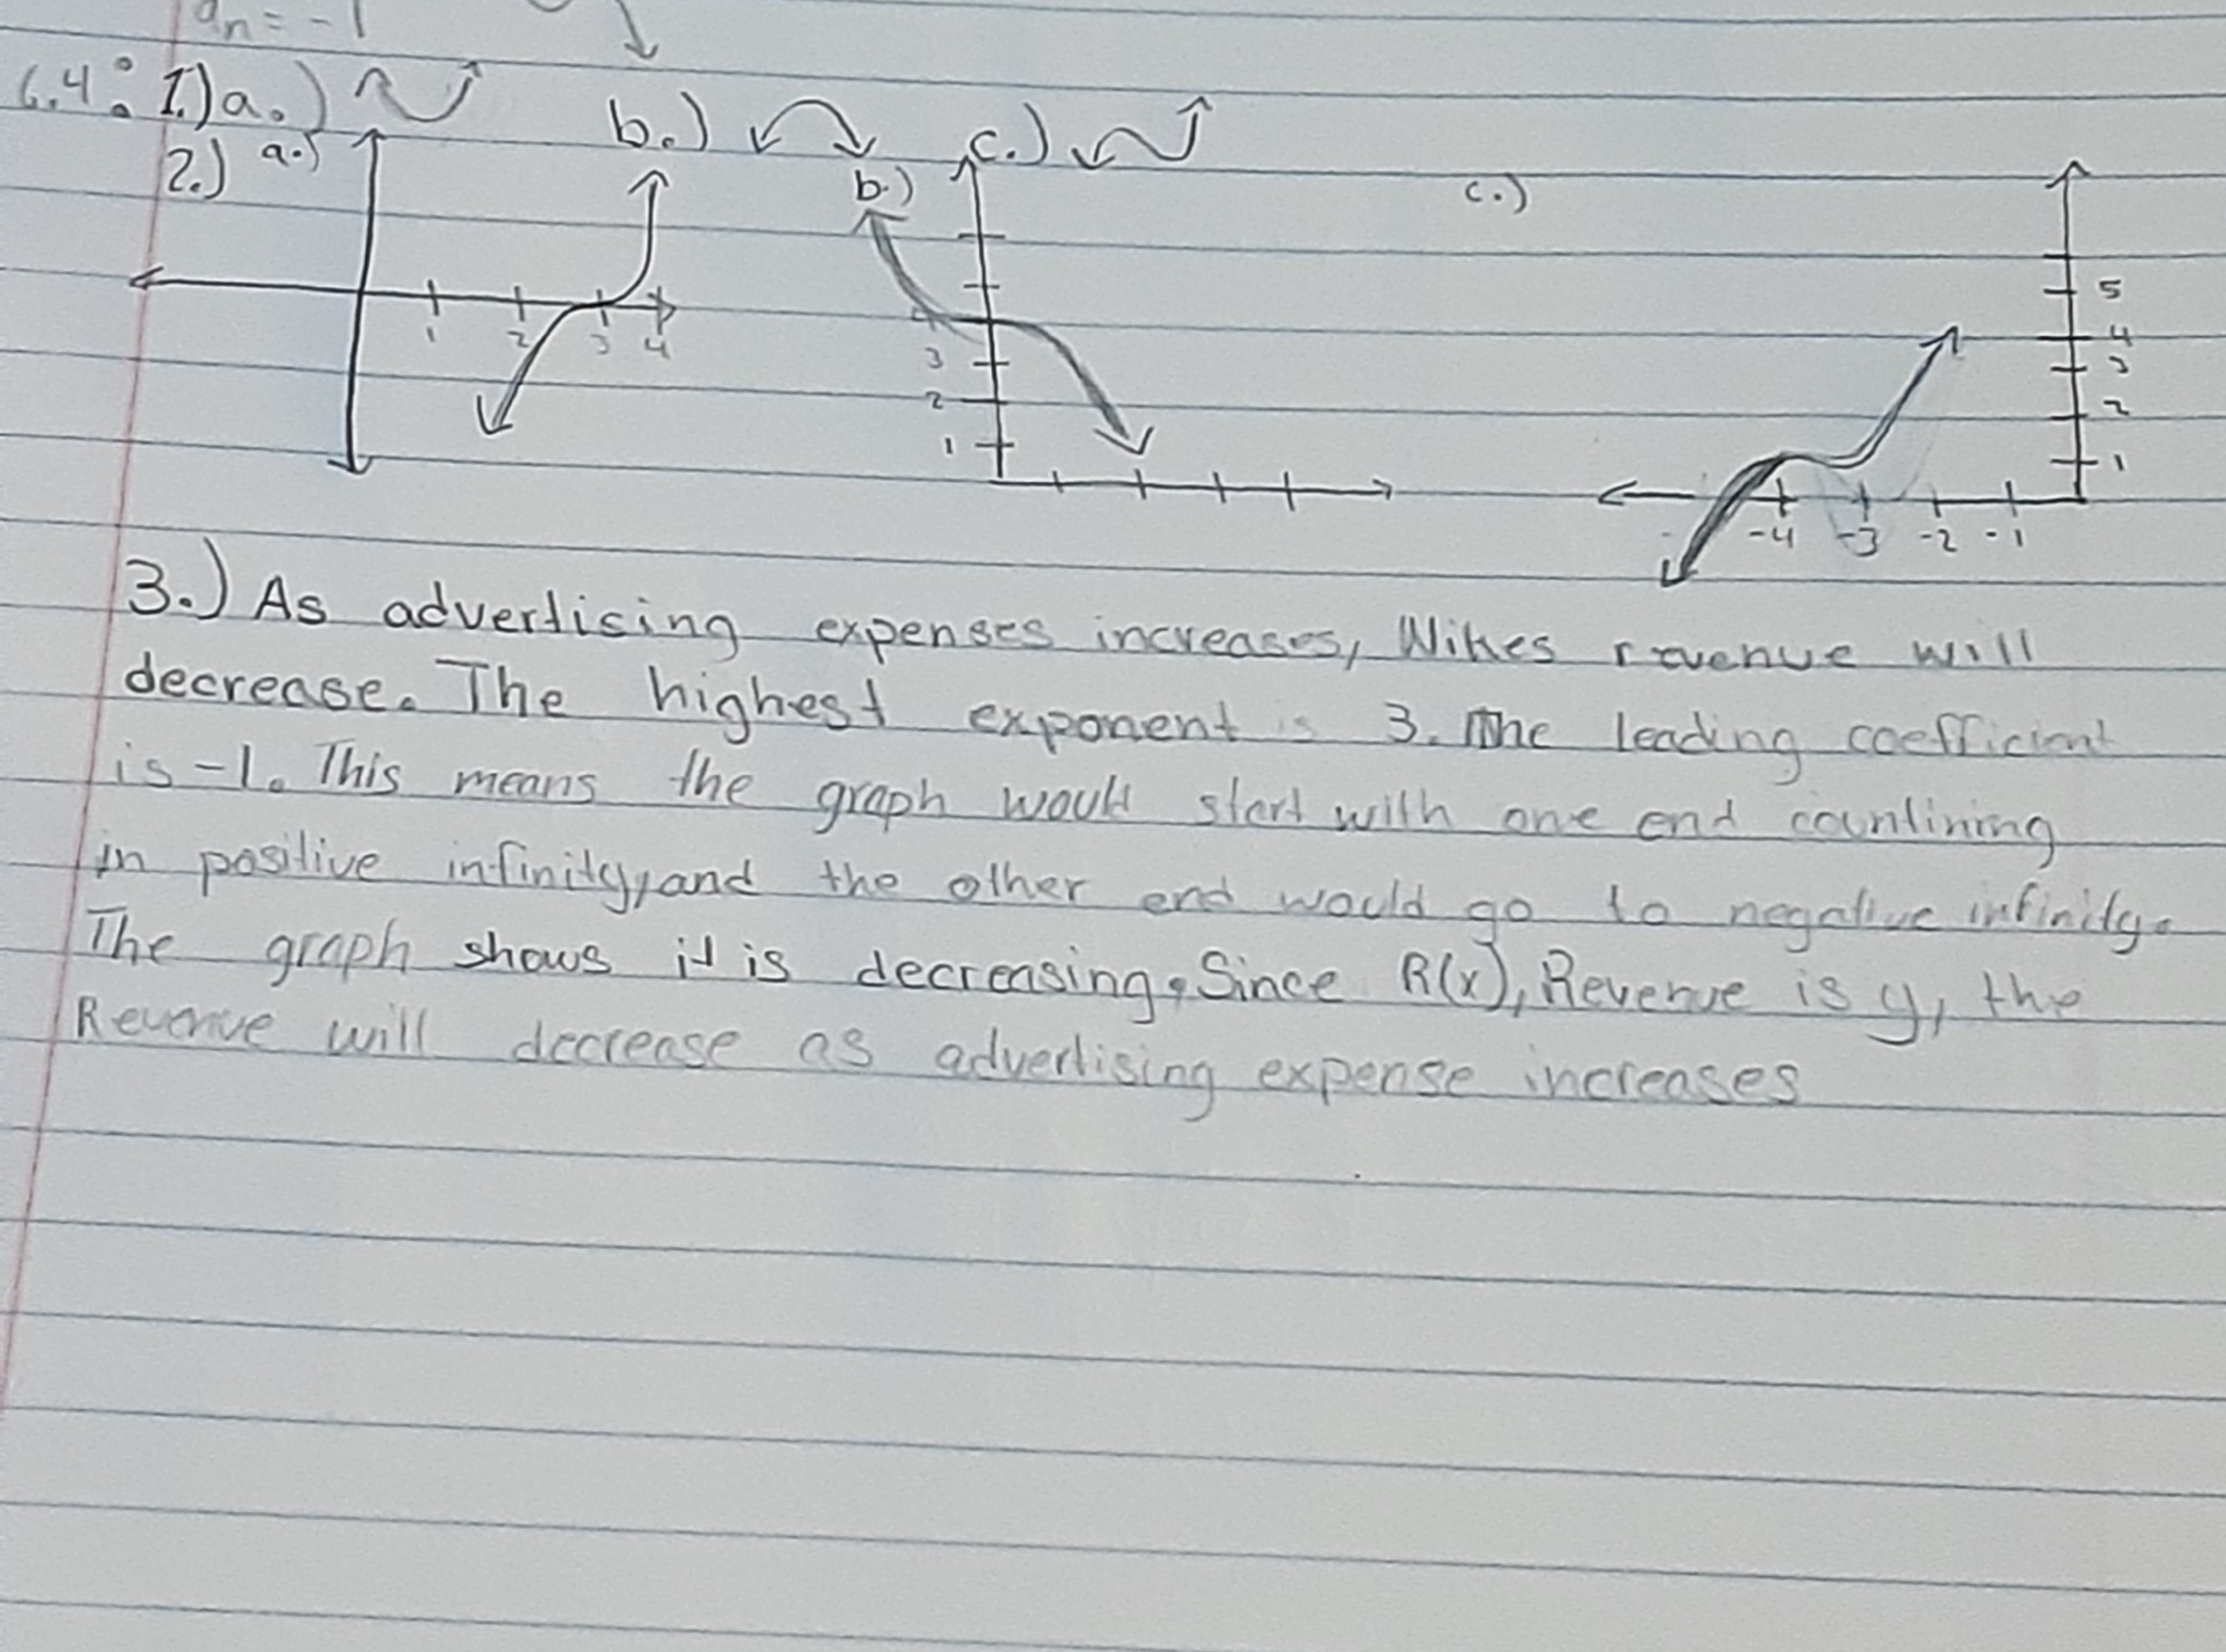 an = -1
6.4: 1.) a.) b.) c.)
2.) a.) b.) c.)
1 2 3 4
4 3 2 1
5 4 3 2 1
-4 -3 -2 -1
3.) As advertising expenses increases, Nikes revenue will
decrease. The highest exponent is 3. The leading coefficient
is -1. This means the graph would start with one end countining
in positive infinity, and the other end would go to negative infinity.
The graph shows it is decreasing. Since R(x), Revenue is y, the
Revenue will decrease as advertising expense increases